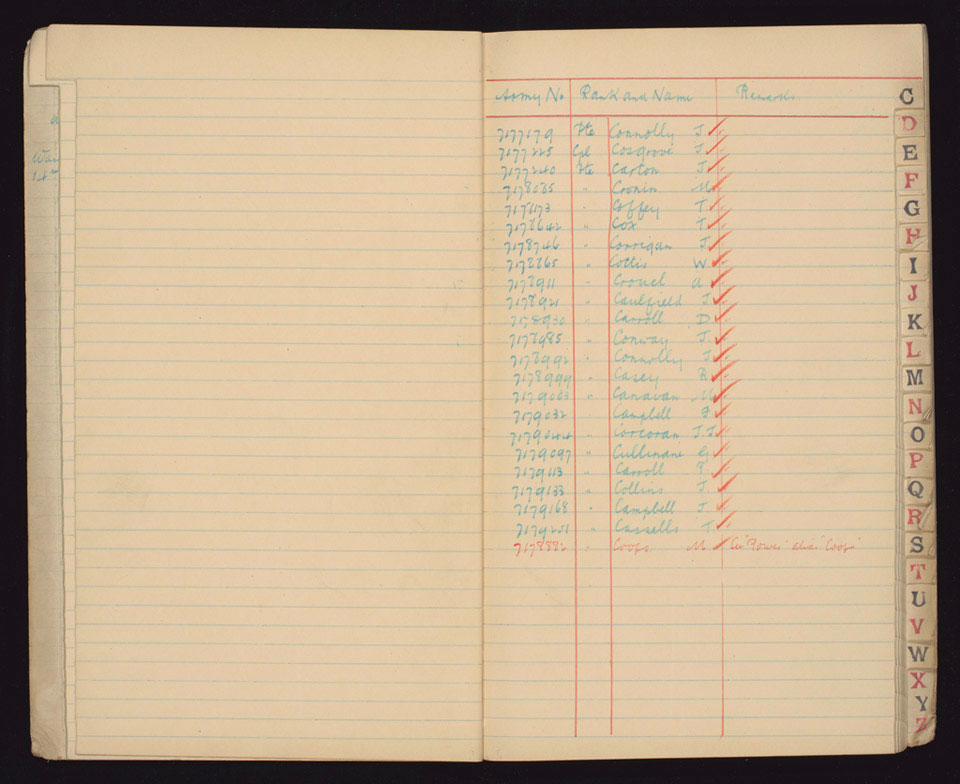 Army No Rank and Name Remarks
7177179 Pte Connolly J.
7177225 Cpl Cosgrove J.
7177240 Pte Carton J.
7178085 " Cronin M
" Coffey T.
7178642 " Cox T.
7178746 " Corrigan J.
7178865 " Cottis W
7178911 " Crouch A
7178921 " Caulfield J
7178930 " Carroll D
7178985 " Conway J.
7178992 " Connolly J.
7178999 " Casey R
7179003 " Canavan M
7179032 " Campbell F
7179044 " Corcoran J.J.
7179097 " Cullinane G
7179113 " Carroll P.
7179133 " Collins J.
7179168 " Campbell J.
7179251 " Cassells T.
7178882 " Coops M See 'Power' alias 'Coop'
C
D
E
F
G
H
I
J
K
L
M
N
O
P
Q
R
S
T
U
V
W
X
Y
Z